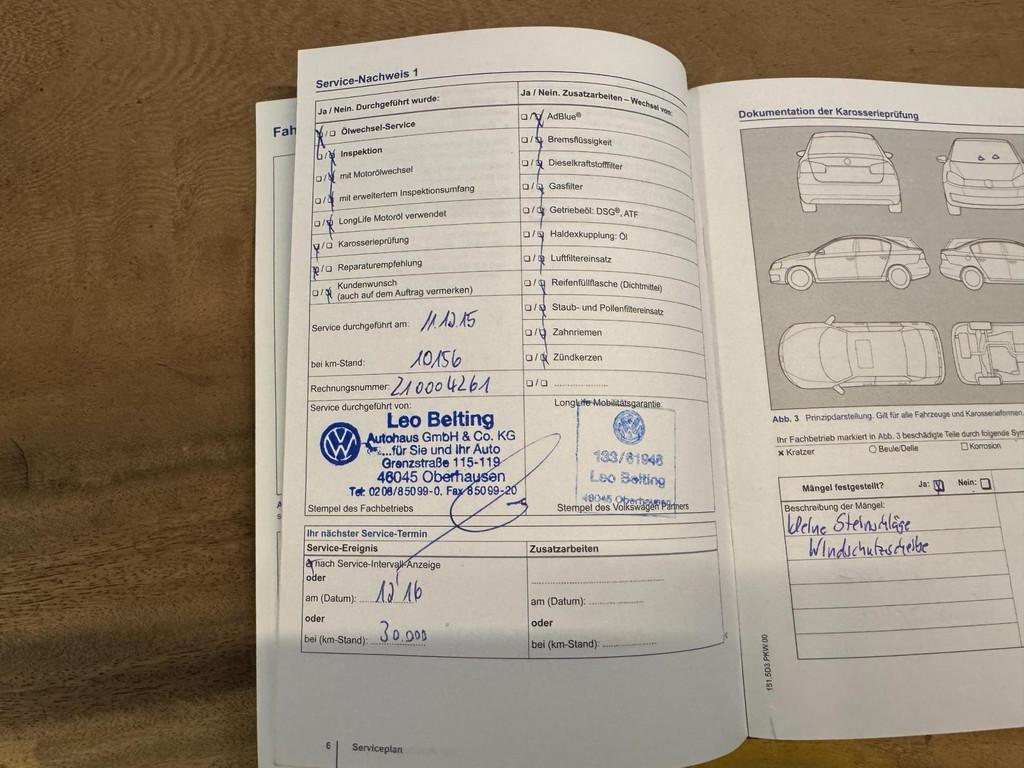 Service-Nachweis 1
Ja / Nein. Durchgeführt wurde:
Ölwechsel-Service
Inspektion
mit Motorölwechsel
mit erweitertem Inspektionsumfang
LongLife Motoröl verwendet
Karosserieprüfung
Reparaturempfehlung
Kundenwunsch
(auch auf dem Auftrag vermerken)
Service durchgeführt am: 11.12.15
bei km-Stand: 10156
Rechnungsnummer: 210004261
Ja / Nein. Zusatzarbeiten – Wechsel von:
AdBlue®
Bremsflüssigkeit
Dieselkraftstofffilter
Gasfilter
Getriebeöl: DSG®, ATF
Haldexkupplung: Öl
Luftfiltereinsatz
Reifenfüllflasche (Dichtmittel)
Staub- und Pollenfiltereinsatz
Zahnriemen
Zündkerzen
Service durchgeführt von:
Leo Belting
Autohaus GmbH & Co. KG
...für Sie und Ihr Auto
Grenzstraße 115-119
46045 Oberhausen
Tel: 0208/85099-0. Fax 85099-20
Stempel des Fachbetriebs
LongLife Mobilitätsgarantie:
133/61946
Leo Belting
46045 Oberhausen
Stempel des Volkswagen Partners
Ihr nächster Service-Termin
Service-Ereignis
nach Service-Intervall-Anzeige
oder
am (Datum): 12 16
oder
bei (km-Stand): 30.000
Zusatzarbeiten
am (Datum):
oder
bei (km-Stand):
6 Serviceplan
Fah
Dokumentation der Karosserieprüfung
Abb. 3 Prinzipdarstellung. Gilt für alle Fahrzeuge und Karosserieformen.
Ihr Fachbetrieb markiert in Abb. 3 beschädigte Teile durch folgende Sym
x Kratzer
Beule/Delle
Korrosion
Mängel festgestellt? Ja: Nein:
Beschreibung der Mängel:
kleine Steinschläge
Windschutzscheibe
151.5D3.PKW.00